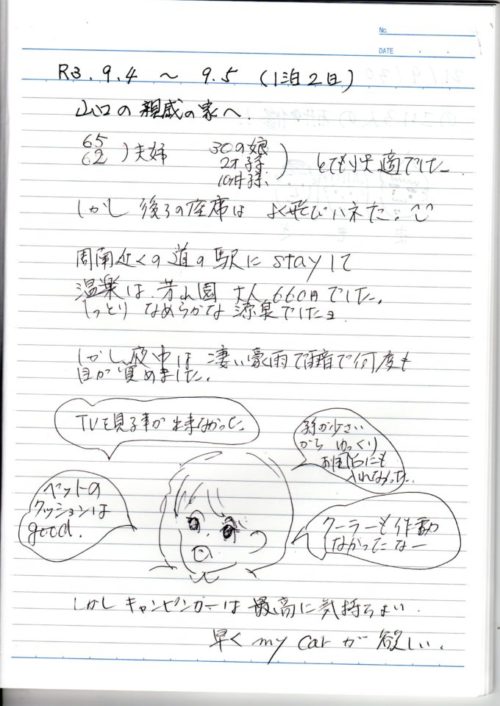 No.
DATE
R3.9.4 〜 9.5 (1泊2日)
山口の親戚の家へ.
65
62 ) 夫婦
30の娘
2才孫
10ヶ月孫 ) とても快適でした
しかし 後ろの座席は よく飛びハネた.
周南近くの道の駅に stayして
温泉は. 大人 660円でした.
しっとり なめらかな 源泉でしたヨ.
しかし夜中は 凄い豪雨で雨音で何度も
目が覚めました.
TVを見る事が出来なかった.
孫が小さい
から ゆっくり
お風呂にも
入れなかった.
ベットの
クッションは
good.
クーラーも作動
なかったなー
しかし キャンピンカーは 最高に気持ちよい.
早く my car が 欲しい.